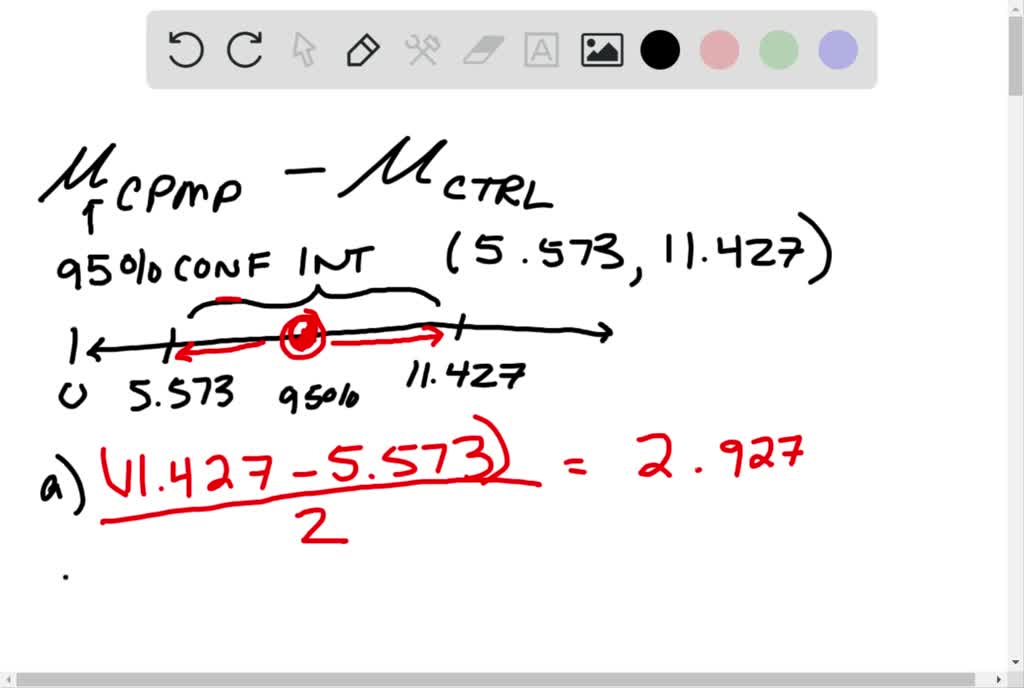 μCPMP - μCTRL
95% CONF INT (5.573, 11.427)
0 5.573 95% 11.427
a) (11.427 - 5.573) / 2 = 2.927